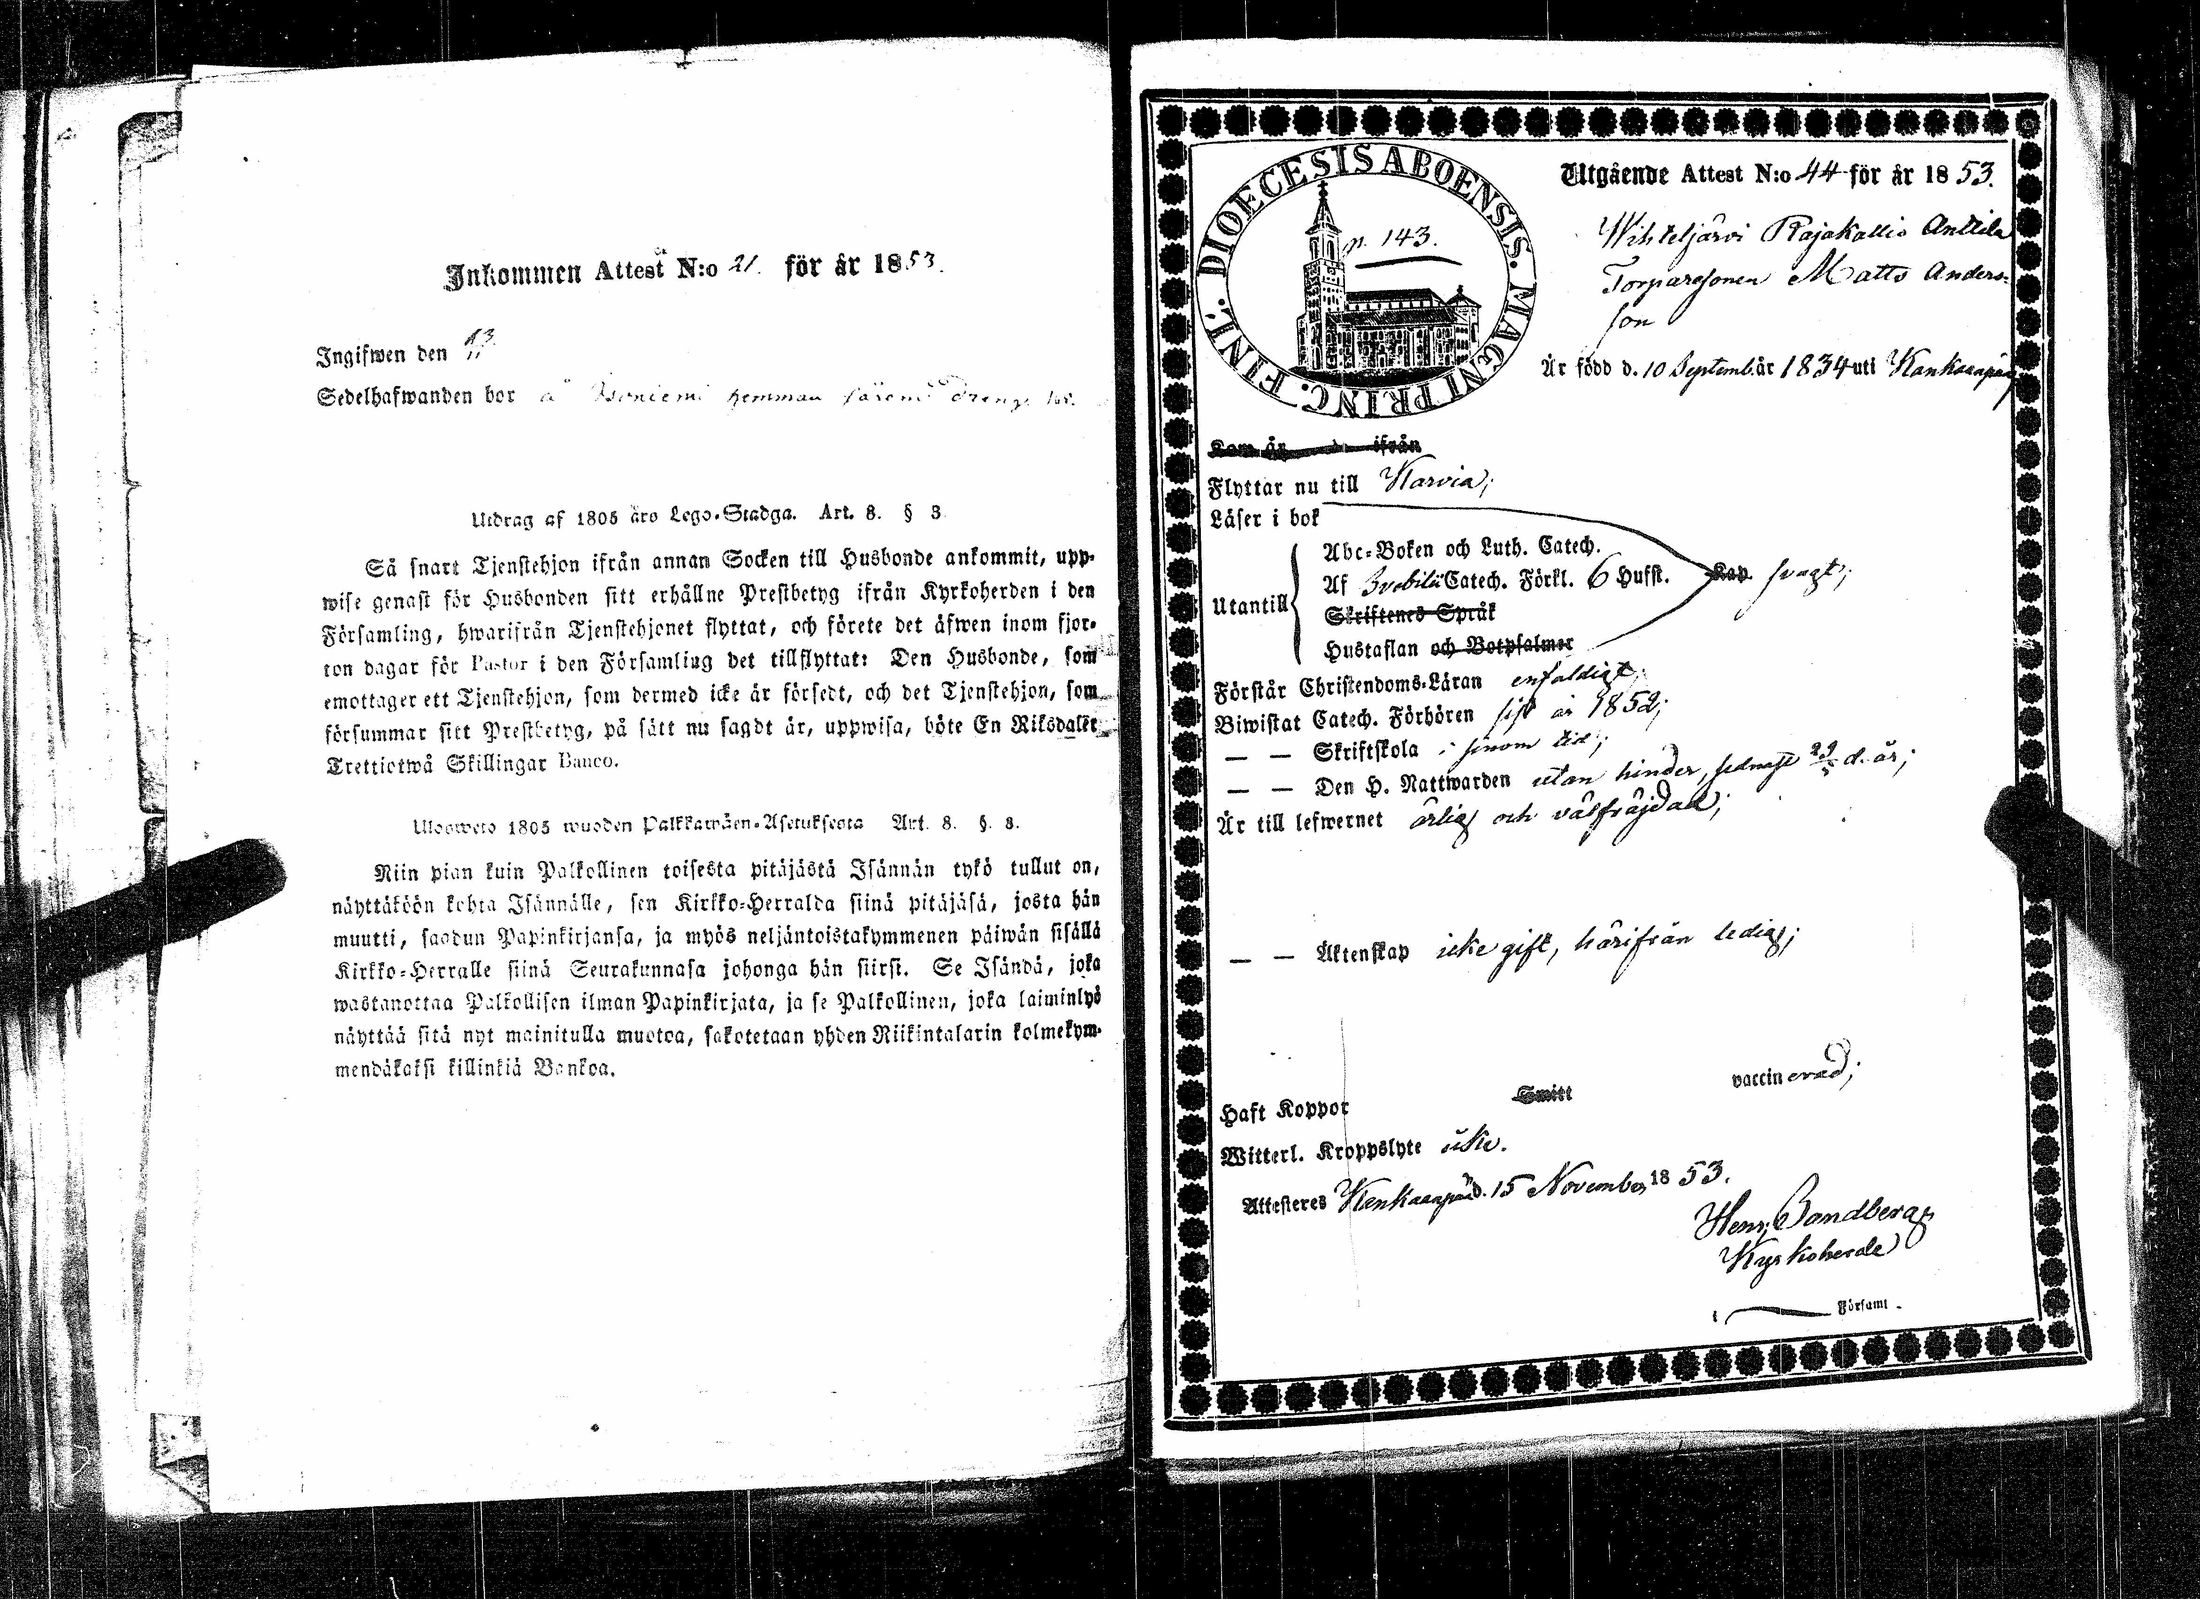 Inkommen Attest N:o 21. för år 1853.
Ingifwen den
Sedelhafwanden bor å hemman såsom Dreng
Utdrag af 1805 års Lego-Stadga. Art. 8. § 3
Så snart Tjenstehjon ifrån annan Socken till Husbonde ankommit, upp-
wise genast för Husbonden sitt erhållne Prestbetyg ifrån Kyrkoherden i den
Församling, hwarifrån Tjenstehjonet flyttat, och förete det äfwen inom fjor-
ton dagar för Pastor i den Församling det tillflyttat: Den Husbonde, som
emottager ett Tjenstehjon, som dermed icke är försedt, och det Tjenstehjon, som
försummar sitt Prestbetyg, på sätt nu sagdt är, uppwisa, böte En Riksdaler
Trettiotwå Skillingar Banco.
Ulosweto 1805 wuoden Palkkawäen-Asetuksesta Art. 8. §. 3.
Niin pian kuin Palkollinen toisesta pitäjästä Isännän tykö tullut on,
näyttäköön kohta Isännälle, sen Kirkko-Herralda siinä pitäjäsä, josta hän
muutti, saadun Papinkirjansa, ja myös neljäntoistakymmenen päiwän sisällä
Kirkko-Herralle siinä Seurakunnasa johonga hän siirsi. Se Isändä, joka
wastanottaa Palkollisen ilman Papinkirjata, ja se Palkollinen, joka laiminlyö
näyttää sitä nyt mainitulla muotoa, sakotetaan yhden Riikintalarin kolmekym-
mendäkaksi killinkiä Bankoa.
DIOECESIS ABOENSIS. MAGNI PRINC. FINL.
p. 143.
Utgående Attest N:o 44 för år 1853.
Wihteljärvi Rajakallio Anttila
Torparesonen Matts Anders-
son
Är född d. 10 Septemb. år 1834 uti Kankaanpää
Kom år ifrån
Flyttar nu till Karvia;
Läser i bok
Abc-Boken och Luth. Catech.
Af Svebilii Catech. Förkl. 6 Hufst. Kap. svagt;
Utantill
Skriftenes Språk
Hustaflan och Botpsalmer
Förstår Christendoms-Läran enfaldigt;
Biwistat Catech. Förhören sist år 1852;
— — Skriftskola i sinom tid;
— — Den H. Nattwarden utan hinder, sednast 29/5 d. år;
Är till lefwernet ärlig och välfräjdad;
— — Äktenskap icke gift, härifrån ledig;
Haft Koppor Smitt vaccinerad;
Witterl. Kroppslyte icke.
Attesteres Kankaanpää d. 15 November 1853.
Henr. Sandberg
Kyrkoherde
i Församl.